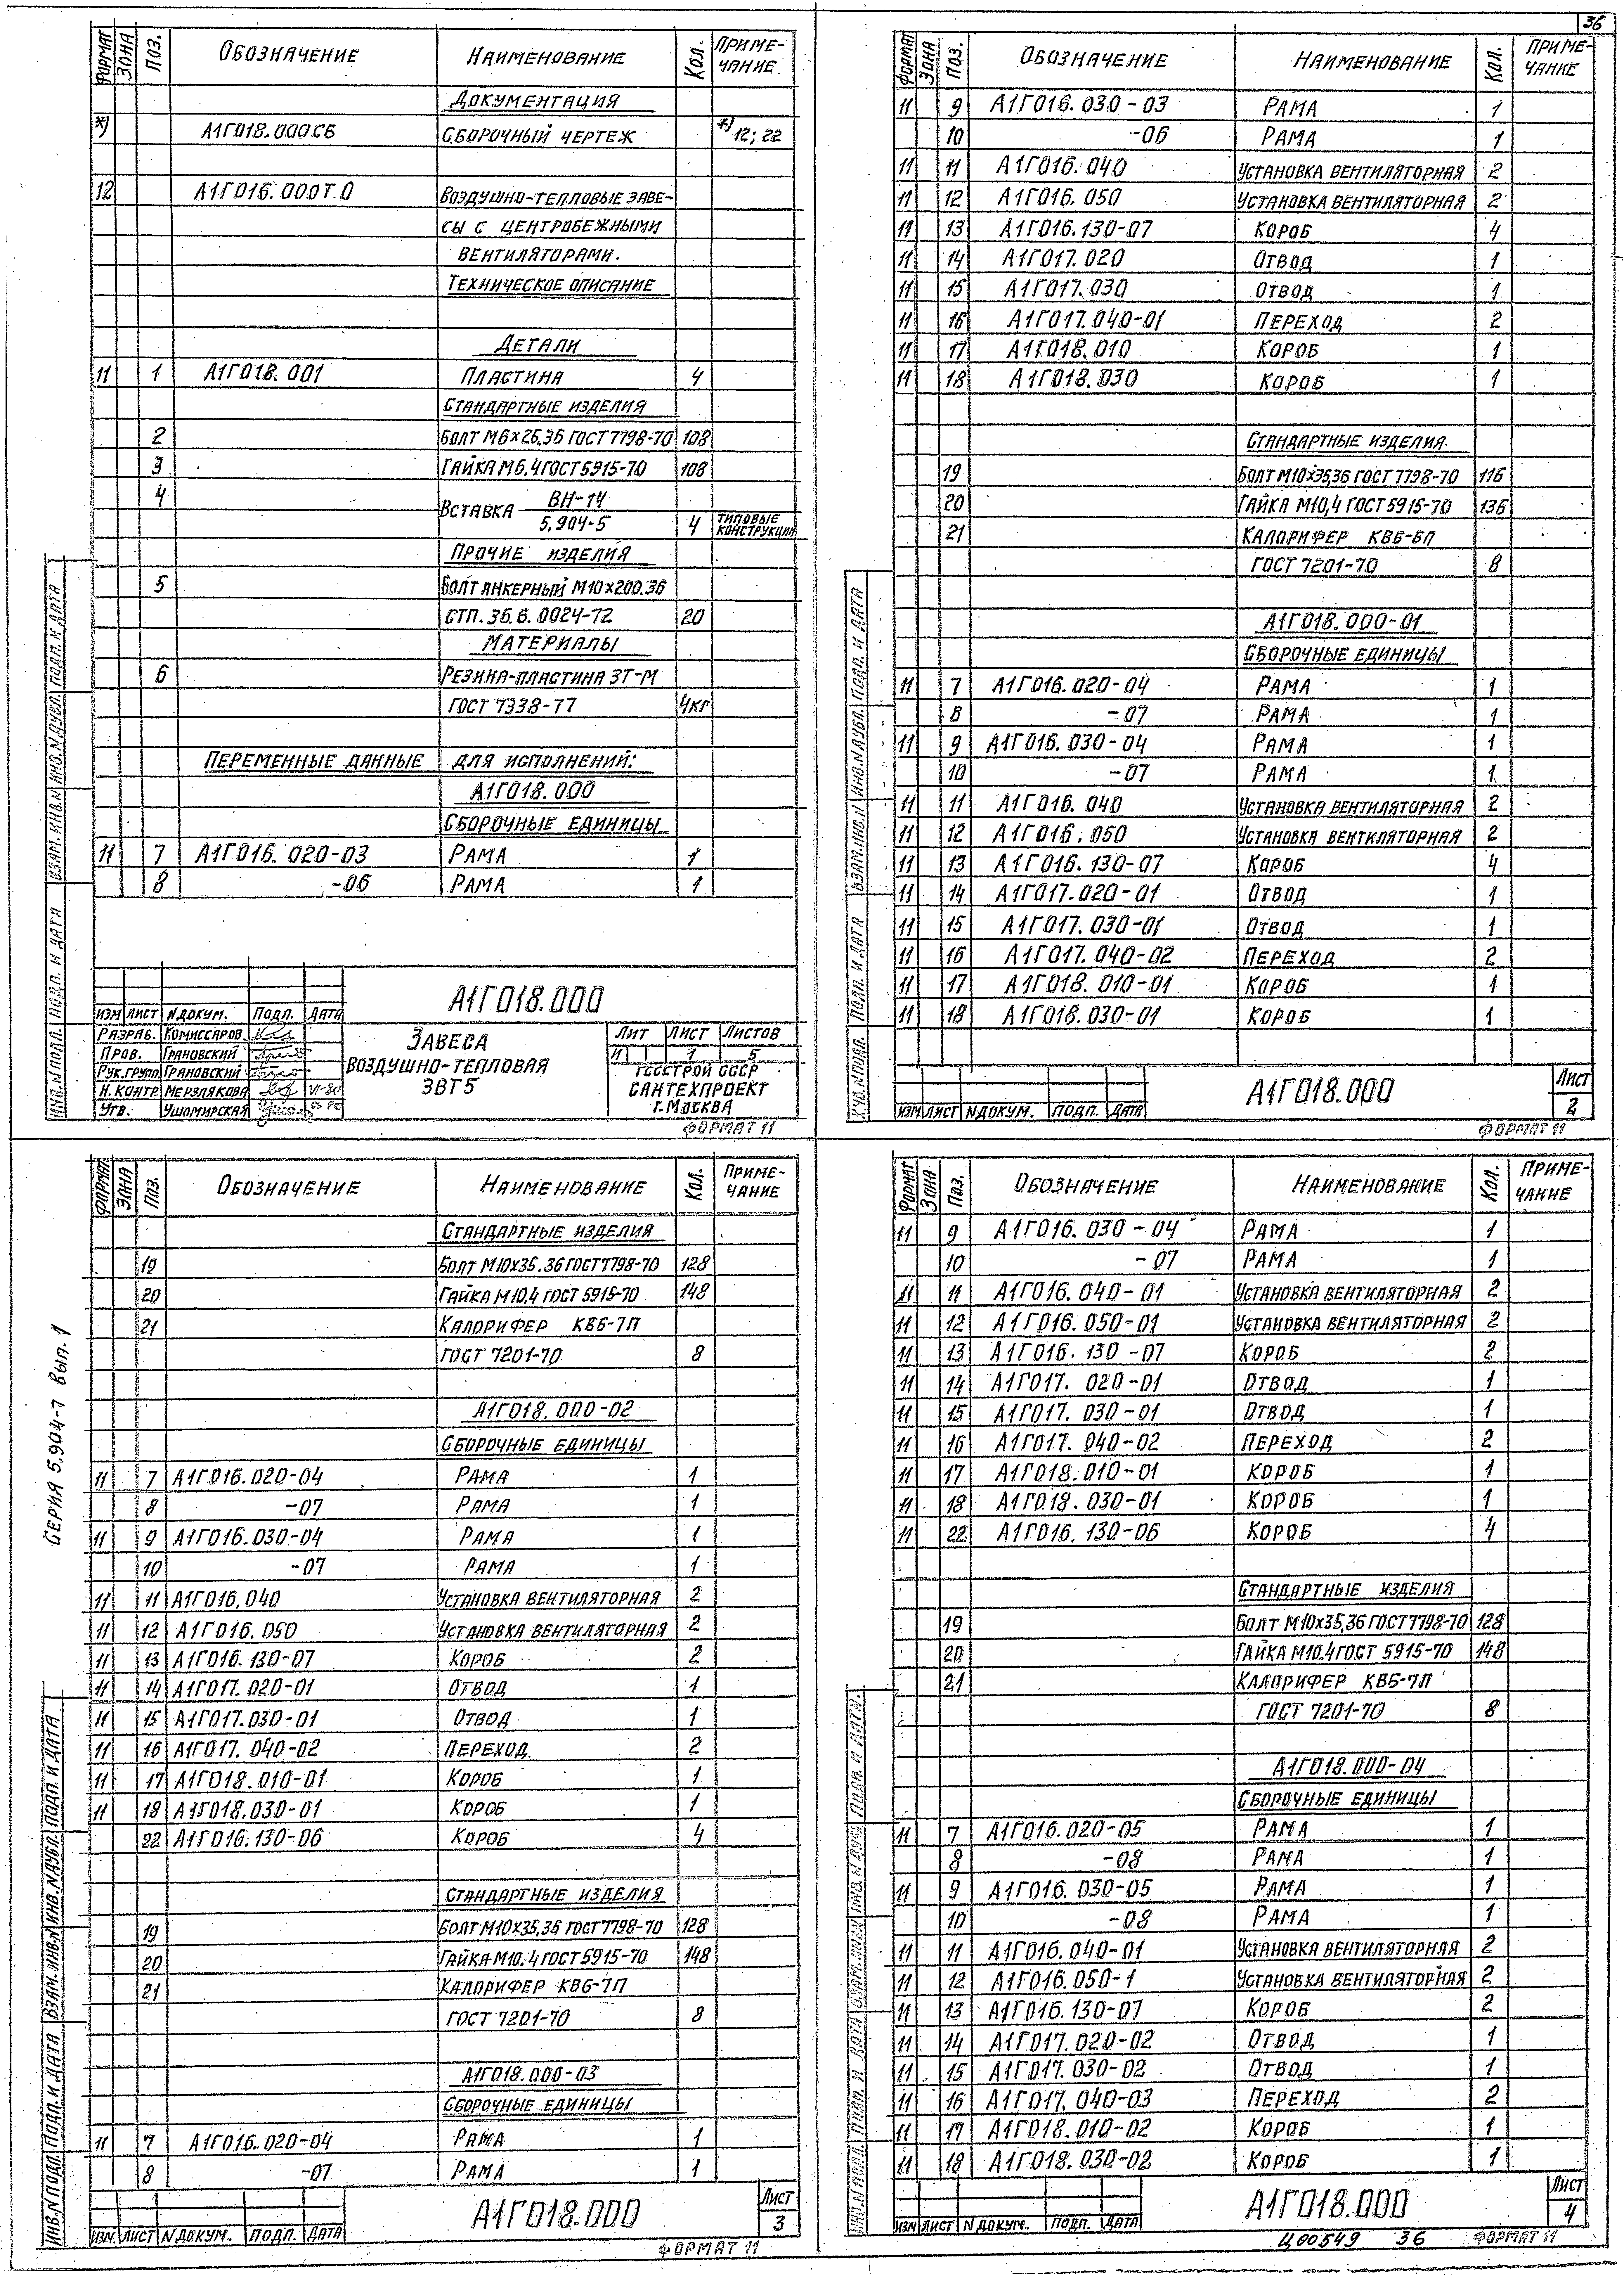 36
ФОРМАТ ЗОНА ПОЗ. ОБОЗНАЧЕНИЕ НАИМЕНОВАНИЕ КОЛ. ПРИМЕ-
ЧАНИЕ
ДОКУМЕНТАЦИЯ
*) А1Г018.000СБ СБОРОЧНЫЙ ЧЕРТЕЖ *) 12; 22
12 А1Г016.000Т.О ВОЗДУШНО-ТЕПЛОВЫЕ ЗАВЕ-
СЫ С ЦЕНТРОБЕЖНЫМИ
ВЕНТИЛЯТОРАМИ.
ТЕХНИЧЕСКОЕ ОПИСАНИЕ
ДЕТАЛИ
11 1 А1Г018.001 ПЛАСТИНА 4
СТАНДАРТНЫЕ ИЗДЕЛИЯ
2 БОЛТ М6×25,36 ГОСТ 7798-70 108
3 ГАЙКА М6.4 ГОСТ 5915-70 108
4 ВСТАВКА ВН-14
5,904-5 4 ТИПОВЫЕ КОНСТРУКЦИИ
ПРОЧИЕ ИЗДЕЛИЯ
5 БОЛТ АНКЕРНЫЙ М10×200.36
СТП.36.6.0024-72 20
МАТЕРИАЛЫ
6 РЕЗИНА-ПЛАСТИНА 3Т-М
ГОСТ 7338-77 4КГ
ПЕРЕМЕННЫЕ ДАННЫЕ ДЛЯ ИСПОЛНЕНИЙ:
А1Г018.000
СБОРОЧНЫЕ ЕДИНИЦЫ
11 7 А1Г016.020-03 РАМА 1
8 -06 РАМА 1
ИНВ.N ПОДЛ. ПОДП. И ДАТА ВЗАМ.ИНВ.N ИНВ.N ДУБЛ. ПОДП. И ДАТА
ИЗМ ЛИСТ N ДОКУМ. ПОДП. ДАТА
А1Г018.000
РАЗРАБ. КОМИССАРОВ
ПРОВ. ГРАНОВСКИЙ
РУК.ГРУПП. ГРАНОВСКИЙ
Н.КОНТР. МЕРЗЛЯКОВА
УТВ. УШОМИРСКАЯ
ЗАВЕСА
ВОЗДУШНО-ТЕПЛОВАЯ
ЗВТ5
ЛИТ ЛИСТ ЛИСТОВ
И 1 5
ГОССТРОЙ СССР
САНТЕХПРОЕКТ
Г.МОСКВА
ФОРМАТ 11
ФОРМАТ ЗОНА ПОЗ. ОБОЗНАЧЕНИЕ НАИМЕНОВАНИЕ КОЛ. ПРИМЕ-
ЧАНИЕ
11 9 А1Г016.030-03 РАМА 1
10 -06 РАМА 1
11 11 А1Г016.040 УСТАНОВКА ВЕНТИЛЯТОРНАЯ 2
11 12 А1Г016.050 УСТАНОВКА ВЕНТИЛЯТОРНАЯ 2
11 13 А1Г016.130-07 КОРОБ 4
11 14 А1Г017.020 ОТВОД 1
11 15 А1Г017.030 ОТВОД 1
11 16 А1Г017.040-01 ПЕРЕХОД 2
11 17 А1Г018.010 КОРОБ 1
11 18 А1Г018.030 КОРОБ 1
СТАНДАРТНЫЕ ИЗДЕЛИЯ
19 БОЛТ М10×35,36 ГОСТ 7798-70 116
20 ГАЙКА М10,4 ГОСТ 5915-70 136
21 КАЛОРИФЕР КВБ-6П
ГОСТ 7201-70 8
А1Г018.000-01
СБОРОЧНЫЕ ЕДИНИЦЫ
11 7 А1Г016.020-04 РАМА 1
8 -07 РАМА 1
11 9 А1Г016.030-04 РАМА 1
10 -07 РАМА 1
11 11 А1Г016.040 УСТАНОВКА ВЕНТИЛЯТОРНАЯ 2
11 12 А1Г016.050 УСТАНОВКА ВЕНТИЛЯТОРНАЯ 2
11 13 А1Г016.130-07 КОРОБ 4
11 14 А1Г017.020-01 ОТВОД 1
11 15 А1Г017.030-01 ОТВОД 1
11 16 А1Г017.040-02 ПЕРЕХОД 2
11 17 А1Г018.010-01 КОРОБ 1
11 18 А1Г018.030-01 КОРОБ 1
ИНВ.N ПОДЛ. ПОДП. И ДАТА ВЗАМ.ИНВ.N ИНВ.N ДУБЛ. ПОДП. И ДАТА
ИЗМ ЛИСТ N ДОКУМ. ПОДП. ДАТА
А1Г018.000
ЛИСТ
2
ФОРМАТ 11
СЕРИЯ 5,904-7 ВЫП. 1
ФОРМАТ ЗОНА ПОЗ. ОБОЗНАЧЕНИЕ НАИМЕНОВАНИЕ КОЛ. ПРИМЕ-
ЧАНИЕ
СТАНДАРТНЫЕ ИЗДЕЛИЯ
19 БОЛТ М10×35.36 ГОСТ 7798-70 128
20 ГАЙКА М10,4 ГОСТ 5915-70 148
21 КАЛОРИФЕР КВБ-7П
ГОСТ 7201-70 8
А1Г018.000-02
СБОРОЧНЫЕ ЕДИНИЦЫ
11 7 А1Г016.020-04 РАМА 1
8 -07 РАМА 1
11 9 А1Г016.030-04 РАМА 1
10 -07 РАМА 1
11 11 А1Г016.040 УСТАНОВКА ВЕНТИЛЯТОРНАЯ 2
11 12 А1Г016.050 УСТАНОВКА ВЕНТИЛЯТОРНАЯ 2
11 13 А1Г016.130-07 КОРОБ 2
11 14 А1Г017.020-01 ОТВОД 1
11 15 А1Г017.030-01 ОТВОД 1
11 16 А1Г017.040-02 ПЕРЕХОД 2
11 17 А1Г018.010-01 КОРОБ 1
11 18 А1Г018.030-01 КОРОБ 1
22 А1Г016.130-06 КОРОБ 4
СТАНДАРТНЫЕ ИЗДЕЛИЯ
19 БОЛТ М10×35,36 ГОСТ 7798-70 128
20 ГАЙКА М10.4 ГОСТ 5915-70 148
21 КАЛОРИФЕР КВБ-7П
ГОСТ 7201-70 8
А1Г018.000-03
СБОРОЧНЫЕ ЕДИНИЦЫ
11 7 А1Г016.020-04 РАМА 1
8 -07 РАМА 1
ИНВ.N ПОДЛ. ПОДП. И ДАТА ВЗАМ.ИНВ.N ИНВ.N ДУБЛ. ПОДП. И ДАТА
ИЗМ ЛИСТ N ДОКУМ. ПОДП. ДАТА
А1Г018.000
ЛИСТ
3
ФОРМАТ 11
ФОРМАТ ЗОНА ПОЗ. ОБОЗНАЧЕНИЕ НАИМЕНОВАНИЕ КОЛ. ПРИМЕ-
ЧАНИЕ
11 9 А1Г016.030-04 РАМА 1
10 -07 РАМА 1
11 11 А1Г016.040-01 УСТАНОВКА ВЕНТИЛЯТОРНАЯ 2
11 12 А1Г016.050-01 УСТАНОВКА ВЕНТИЛЯТОРНАЯ 2
11 13 А1Г016.130-07 КОРОБ 2
11 14 А1Г017.020-01 ОТВОД 1
11 15 А1Г017.030-01 ОТВОД 1
11 16 А1Г017.040-02 ПЕРЕХОД 2
11 17 А1Г018.010-01 КОРОБ 1
11 18 А1Г018.030-01 КОРОБ 1
11 22 А1Г016.130-06 КОРОБ 4
СТАНДАРТНЫЕ ИЗДЕЛИЯ
19 БОЛТ М10×35,36 ГОСТ 7798-70 128
20 ГАЙКА М10.4 ГОСТ 5915-70 148
21 КАЛОРИФЕР КВБ-7П
ГОСТ 7201-70 8
А1Г018.000-04
СБОРОЧНЫЕ ЕДИНИЦЫ
11 7 А1Г016.020-05 РАМА 1
8 -08 РАМА 1
11 9 А1Г016.030-05 РАМА 1
10 -08 РАМА 1
11 11 А1Г016.040-01 УСТАНОВКА ВЕНТИЛЯТОРНАЯ 2
11 12 А1Г016.050-1 УСТАНОВКА ВЕНТИЛЯТОРНАЯ 2
11 13 А1Г016.130-07 КОРОБ 2
11 14 А1Г017.020-02 ОТВОД 1
11 15 А1Г017.030-02 ОТВОД 1
11 16 А1Г017.040-03 ПЕРЕХОД 2
11 17 А1Г018.010-02 КОРОБ 1
11 18 А1Г018.030-02 КОРОБ 1
ИЗМ ЛИСТ N ДОКУМ. ПОДП. ДАТА
А1Г018.000
ЛИСТ
4
Ц00549 36 ФОРМАТ 11